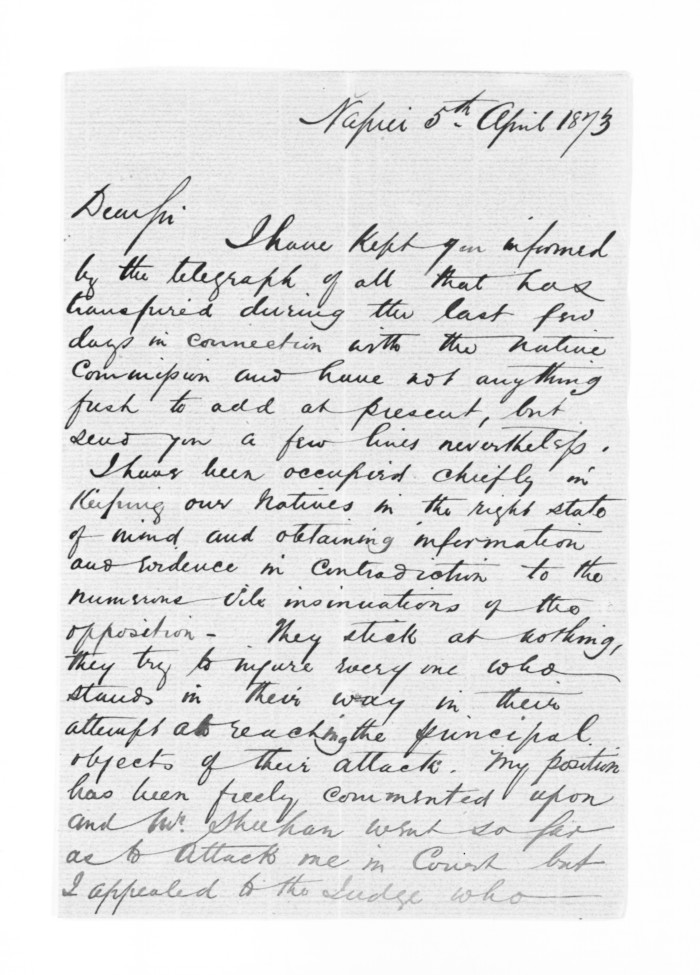 Napier 5th April 1873
Dear Sir
I have kept you informed
by the telegraph of all that has
transpired during the last few
days in connection with the Native
Commission and have not anything
fresh to add at present, but
send you a few lines nevertheless.
I have been occupied chiefly in
Keeping our Natives in the right state
of mind and obtaining information
and evidence in contradiction to the
numerous vile insinuations of the
opposition - They stick at nothing,
they try to injure every one who
stands in their way in their
attempt at reaching the principal
objects of their attack. My position
has been freely commented upon
and Mr. Sheehan went so far
as to attack me in Court but
I appealed to the Judge who